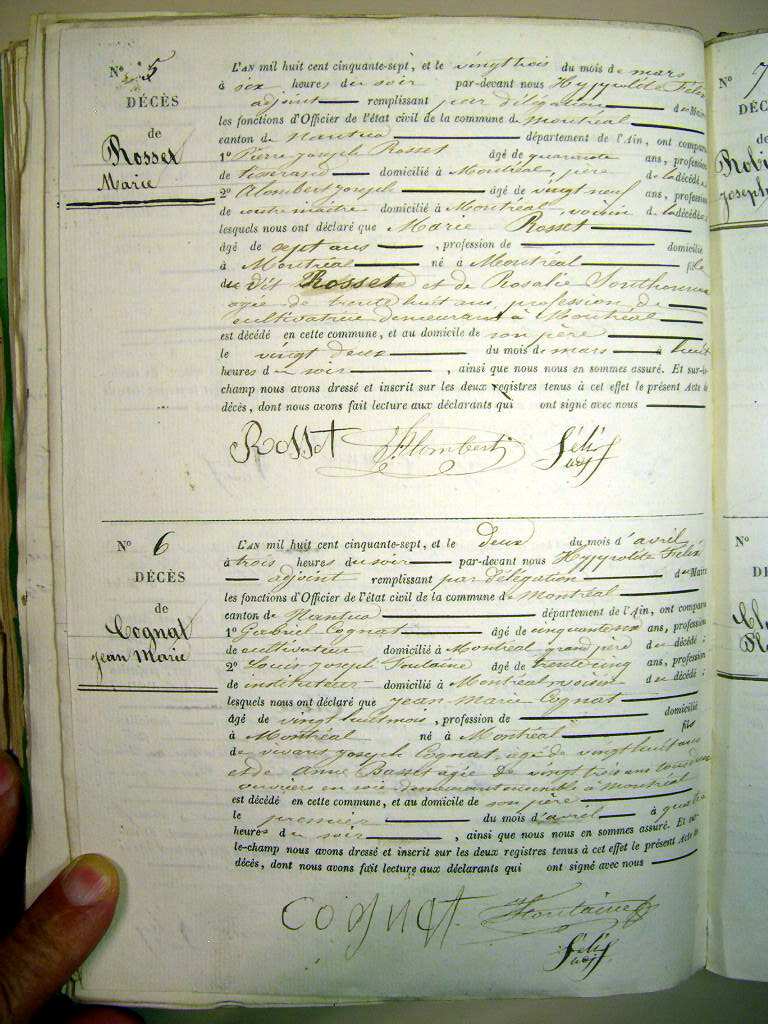 N° 5
DÉCÈS
de
Rosset
Marie
L'AN mil huit cent cinquante-sept, et le vingt trois du mois de mars
à six heures du soir par-devant nous Hyppolite Félix
adjoint remplissant par délégation du Maire
les fonctions d'Officier de l'état civil de la commune de Montréal
canton de Nantua département de l'Ain, ont comparu
1° Pierre Joseph Rosset âgé de quarante ans, profession
de domicilié à Montréal, père de la décédée
2° Alombert Joseph âgé de vingt neuf ans, profession
de contre maître domicilié à Montréal, voisin de la décédée
lesquels nous ont déclaré que Marie Rosset
âgé de sept ans, profession de domicilié
à Montréal né à Montréal fille
du dit Rosset et de Rosalie
agée de trente huit ans, profession de
cultivatrice demeurant à Montréal
est décédé en cette commune, et au domicile de son père
le vingt deux du mois de mars à huit
heures du soir, ainsi que nous nous en sommes assuré. Et sur-le-
champ nous avons dressé et inscrit sur les deux registres tenus à cet effet le présent Acte de
décès, dont nous avons fait lecture aux déclarants qui ont signé avec nous
Rosset J. Alombert Félix adj
N° 6
DÉCÈS
de
Cognat
Jean Marie
L'AN mil huit cent cinquante-sept, et le deux du mois d'avril
à trois heures du soir par-devant nous Hyppolite Félix
adjoint remplissant par délégation du Maire
les fonctions d'Officier de l'état civil de la commune de Montréal
canton de Nantua département de l'Ain, ont comparu
1° Gabriel Cognat âgé de ans, profession
de cultivateur domicilié à Montréal grand père du décédé ;
2° Louis Joseph Fontaine âgé de trente cinq ans, profession
de instituteur domicilié à Montréal voisin du décédé ;
lesquels nous ont déclaré que Jean Marie Cognat
âgé de vingt huit mois, profession de domicilié
à Montréal né à Montréal fils
de vivans Joseph Cognat, agé de vingt huit ans
et de Anne Basset agée de vingt trois ans tous deux
ouvriers en soie demeurant ensemble à Montréal
est décédé en cette commune, et au domicile de son père
le premier du mois d'avril à quatre
heures du soir, ainsi que nous nous en sommes assuré. Et sur-
le-champ nous avons dressé et inscrit sur les deux registres tenus à cet effet le présent Acte de
décès, dont nous avons fait lecture aux déclarants qui ont signé avec nous
Cognat Fontaine
Félix adj
N° 7
DÉC
de
Robi
Joseph
N°
D